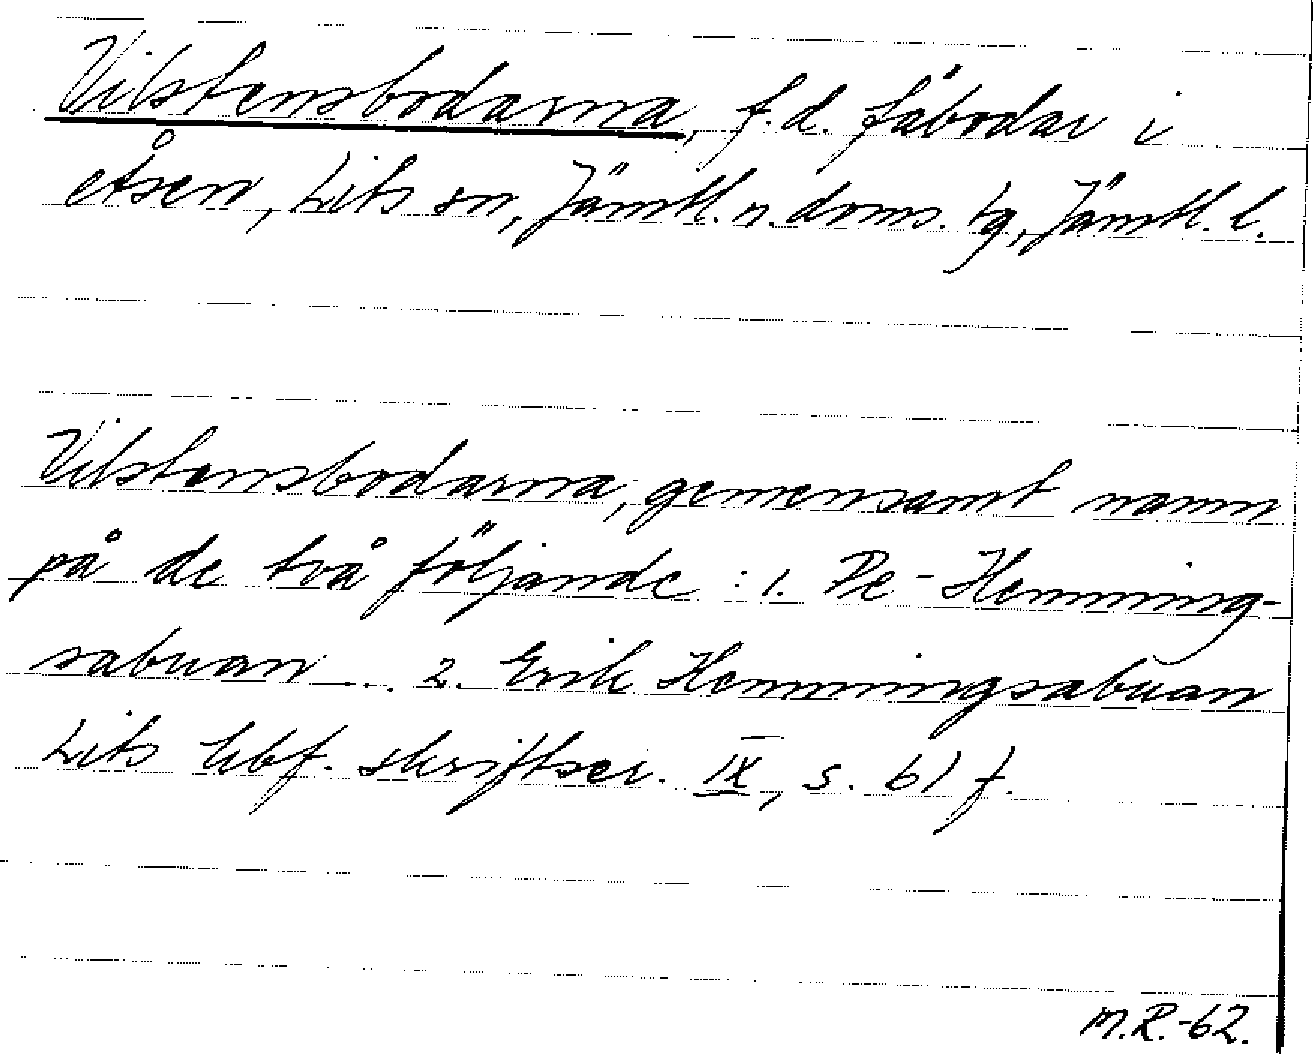 Vilstensbodarna, f.d. fäbodar i
Åsen, Lits sn, Jämtl. n. doms. tg, Jämtl. l.
Vilstensbodarna, gemensamt namn
på de två följande : 1. Pe-Henning-
sabuan ... 2. Erik Henningsabuan
Lits hbf. skriftser. IX, s. 61 f.
M.R.-62.